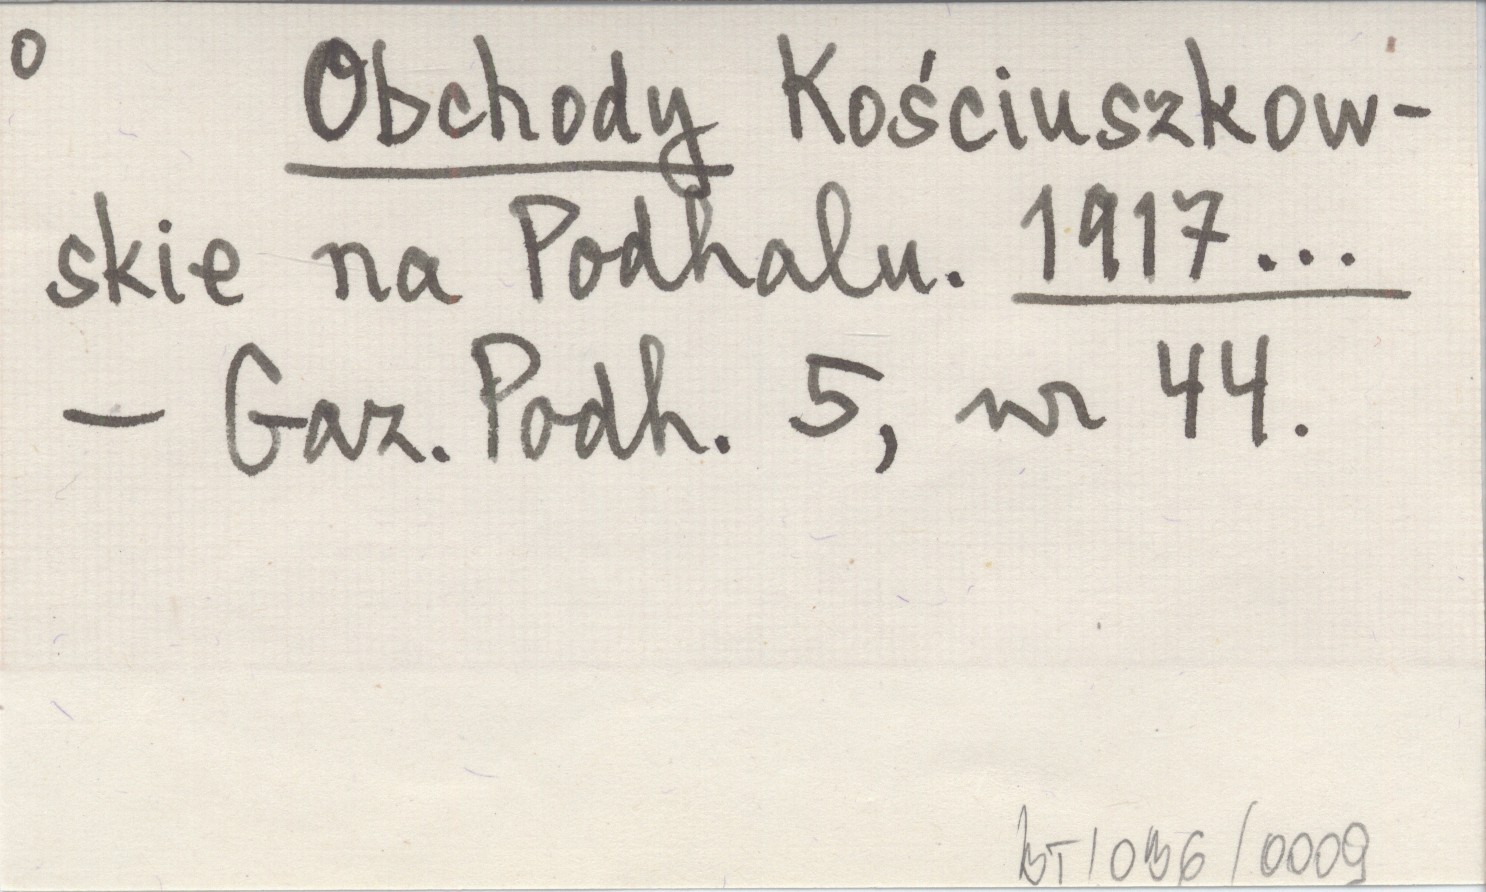 o Obchody Kościuszkow-
skie na Podhalu. 1917...
— Gaz. Podh. 5, nr 44.
BT/036/0009